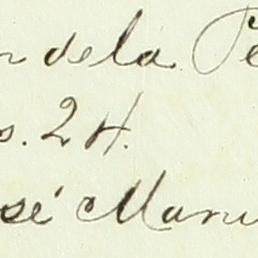 n de la Pe
s. 24.
sé Manu